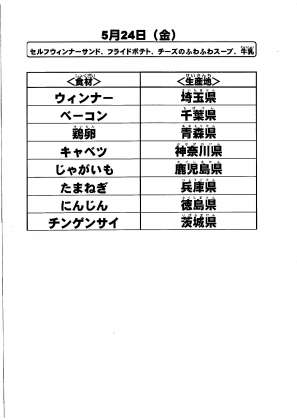 5月24日（金）
セルフウィンナーサンド、フライドポテト、チーズのふわふわスープ、牛乳
＜食材＞ ＜生産地＞
ウィンナー 埼玉県
ベーコン 千葉県
鶏卵 青森県
キャベツ 神奈川県
じゃがいも 鹿児島県
たまねぎ 兵庫県
にんじん 徳島県
チンゲンサイ 茨城県